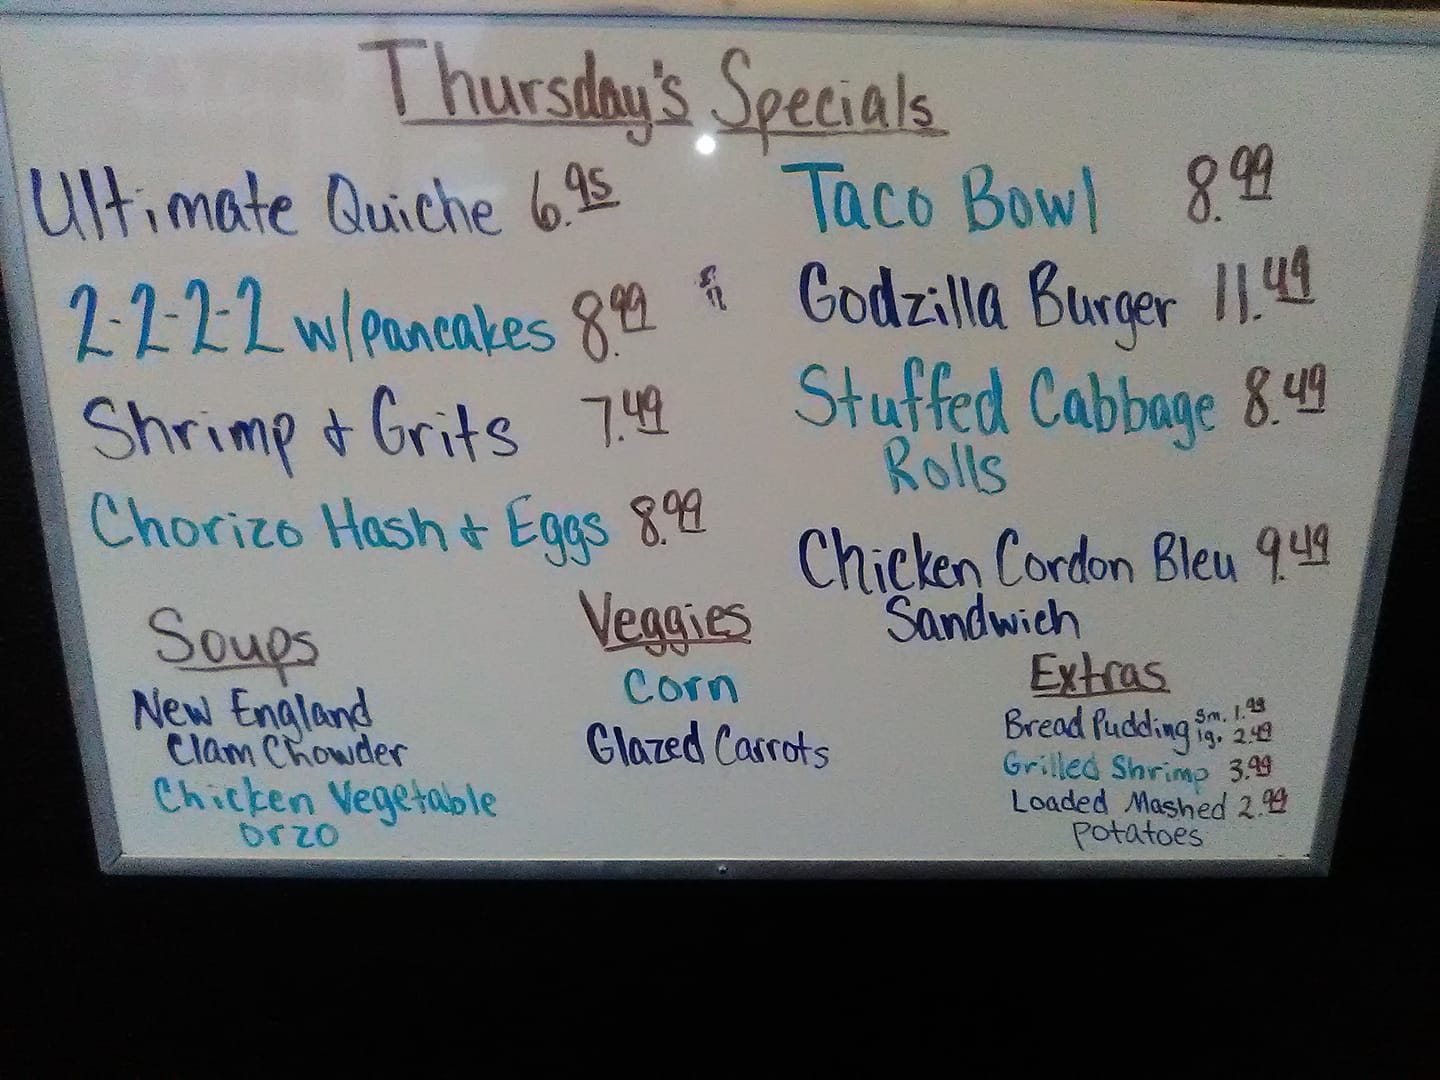 Thursday's Specials
Ultimate Quiche 6.95
2-2-2-2 w/pancakes 8.99
Shrimp & Grits 7.49
Chorizo Hash & Eggs 8.99
Taco Bowl 8.99
Godzilla Burger 11.49
Stuffed Cabbage 8.49
Rolls
Chicken Cordon Bleu 9.49
Sandwich
Soups
New England
Clam Chowder
Chicken Vegetable
orzo
Veggies
Corn
Glazed Carrots
Extras
Bread Pudding sm. 1.99
lg. 2.49
Grilled Shrimp 3.99
Loaded Mashed 2.99
potatoes